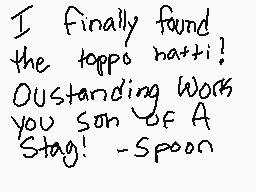 I finally found
the toppo hatti!
Oustanding Work
you son of A
Stag! -Spoon